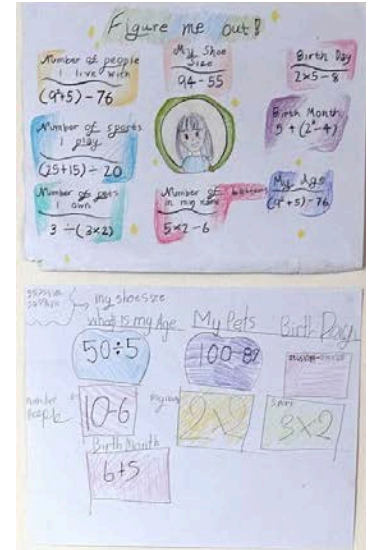 Figure me out!
Number of people
I live with
(9²+5) - 76
My Shoe
Size
94 - 55
Birth Day
2×5-8
Number of sports
I play
(25+15) ÷ 20
Birth Month
Number of pets
I own
3 ÷ (3×2)
Number of
in my name
5×2-6
My Age
(9²+5) - 76
my shoe size
what is my Age
My Pets
Birth Day
50÷5
Number
People
10-6
2×2
3×2
Birth Month
6+5